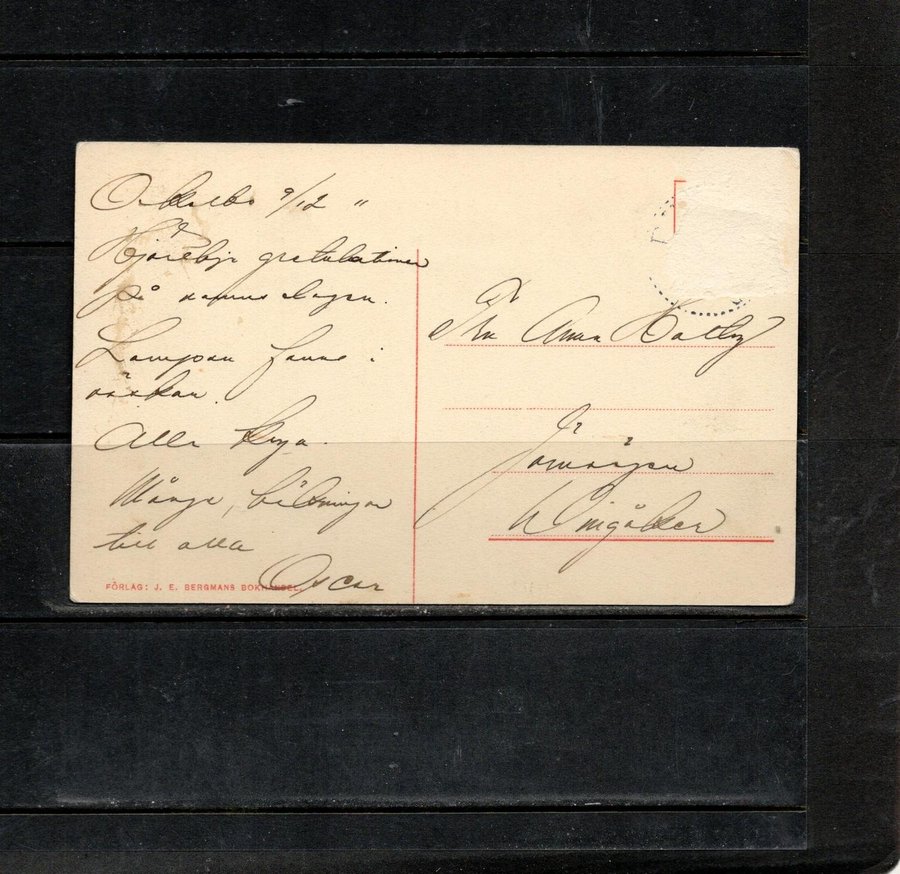 Ockelbo 9/12 "
Hjärtliga gratulationer
på namnsdagen.
Lampan fanns i
väskan.
Alla krya.
Många hälsningar
till alla
Oscar
FÖRLAG: J. E. BERGMANS BOKHANDEL
Frk Anna
W Vingåker